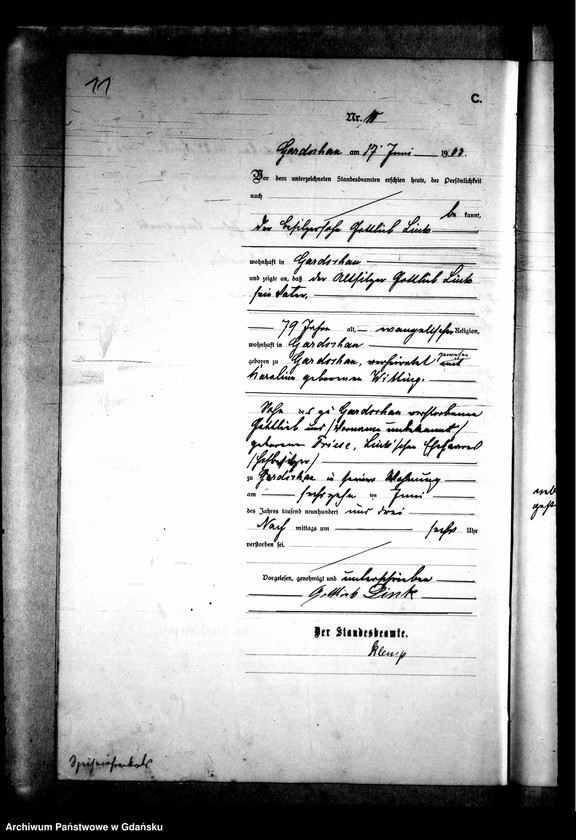 11
C.
Nr. 11
Gardschau am 17 Juni 1903.
Vor dem unterzeichneten Standesbeamten erschien heute, der Persönlichkeit
nach
be kannt,
der Besitzersohn Gottlieb Link
wohnhaft in Gardschau
und zeigte an, daß der Altsitzer Gottlieb Link
sein Vater,
79 Jahre alt, evangelischer Religion,
wohnhaft in Gardschau
geboren zu Gardschau, verheiratet gewesen mit
Karoline geborenen Witting.
Sohn des zu Gardschau verstorbenen
Gottlieb und /Vorname unbekannt/
geborenen Friese, Link'schen Eheleute
zu Gardschau in seiner Wohnung
am sechszehn ten Juni
des Jahres tausend neunhundert und drei
Nach mittags um sechs Uhr
verstorben sei.
Vorgelesen, genehmigt und unterschrieben
Gottlieb Link
Der Standesbeamte.
Archiwum Państwowe w Gdańsku